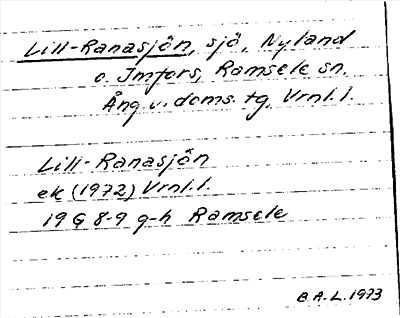 Lill-Ranasjön, sjö, Nyland
o. Imfors, Ramsele sn.
Ång. v. doms. tg, Vrnl. l.
Lill-Ranasjön
ek (1972) Vrnl. l.
19 G 8-9 g-h Ramsele
B.A.L. 1973